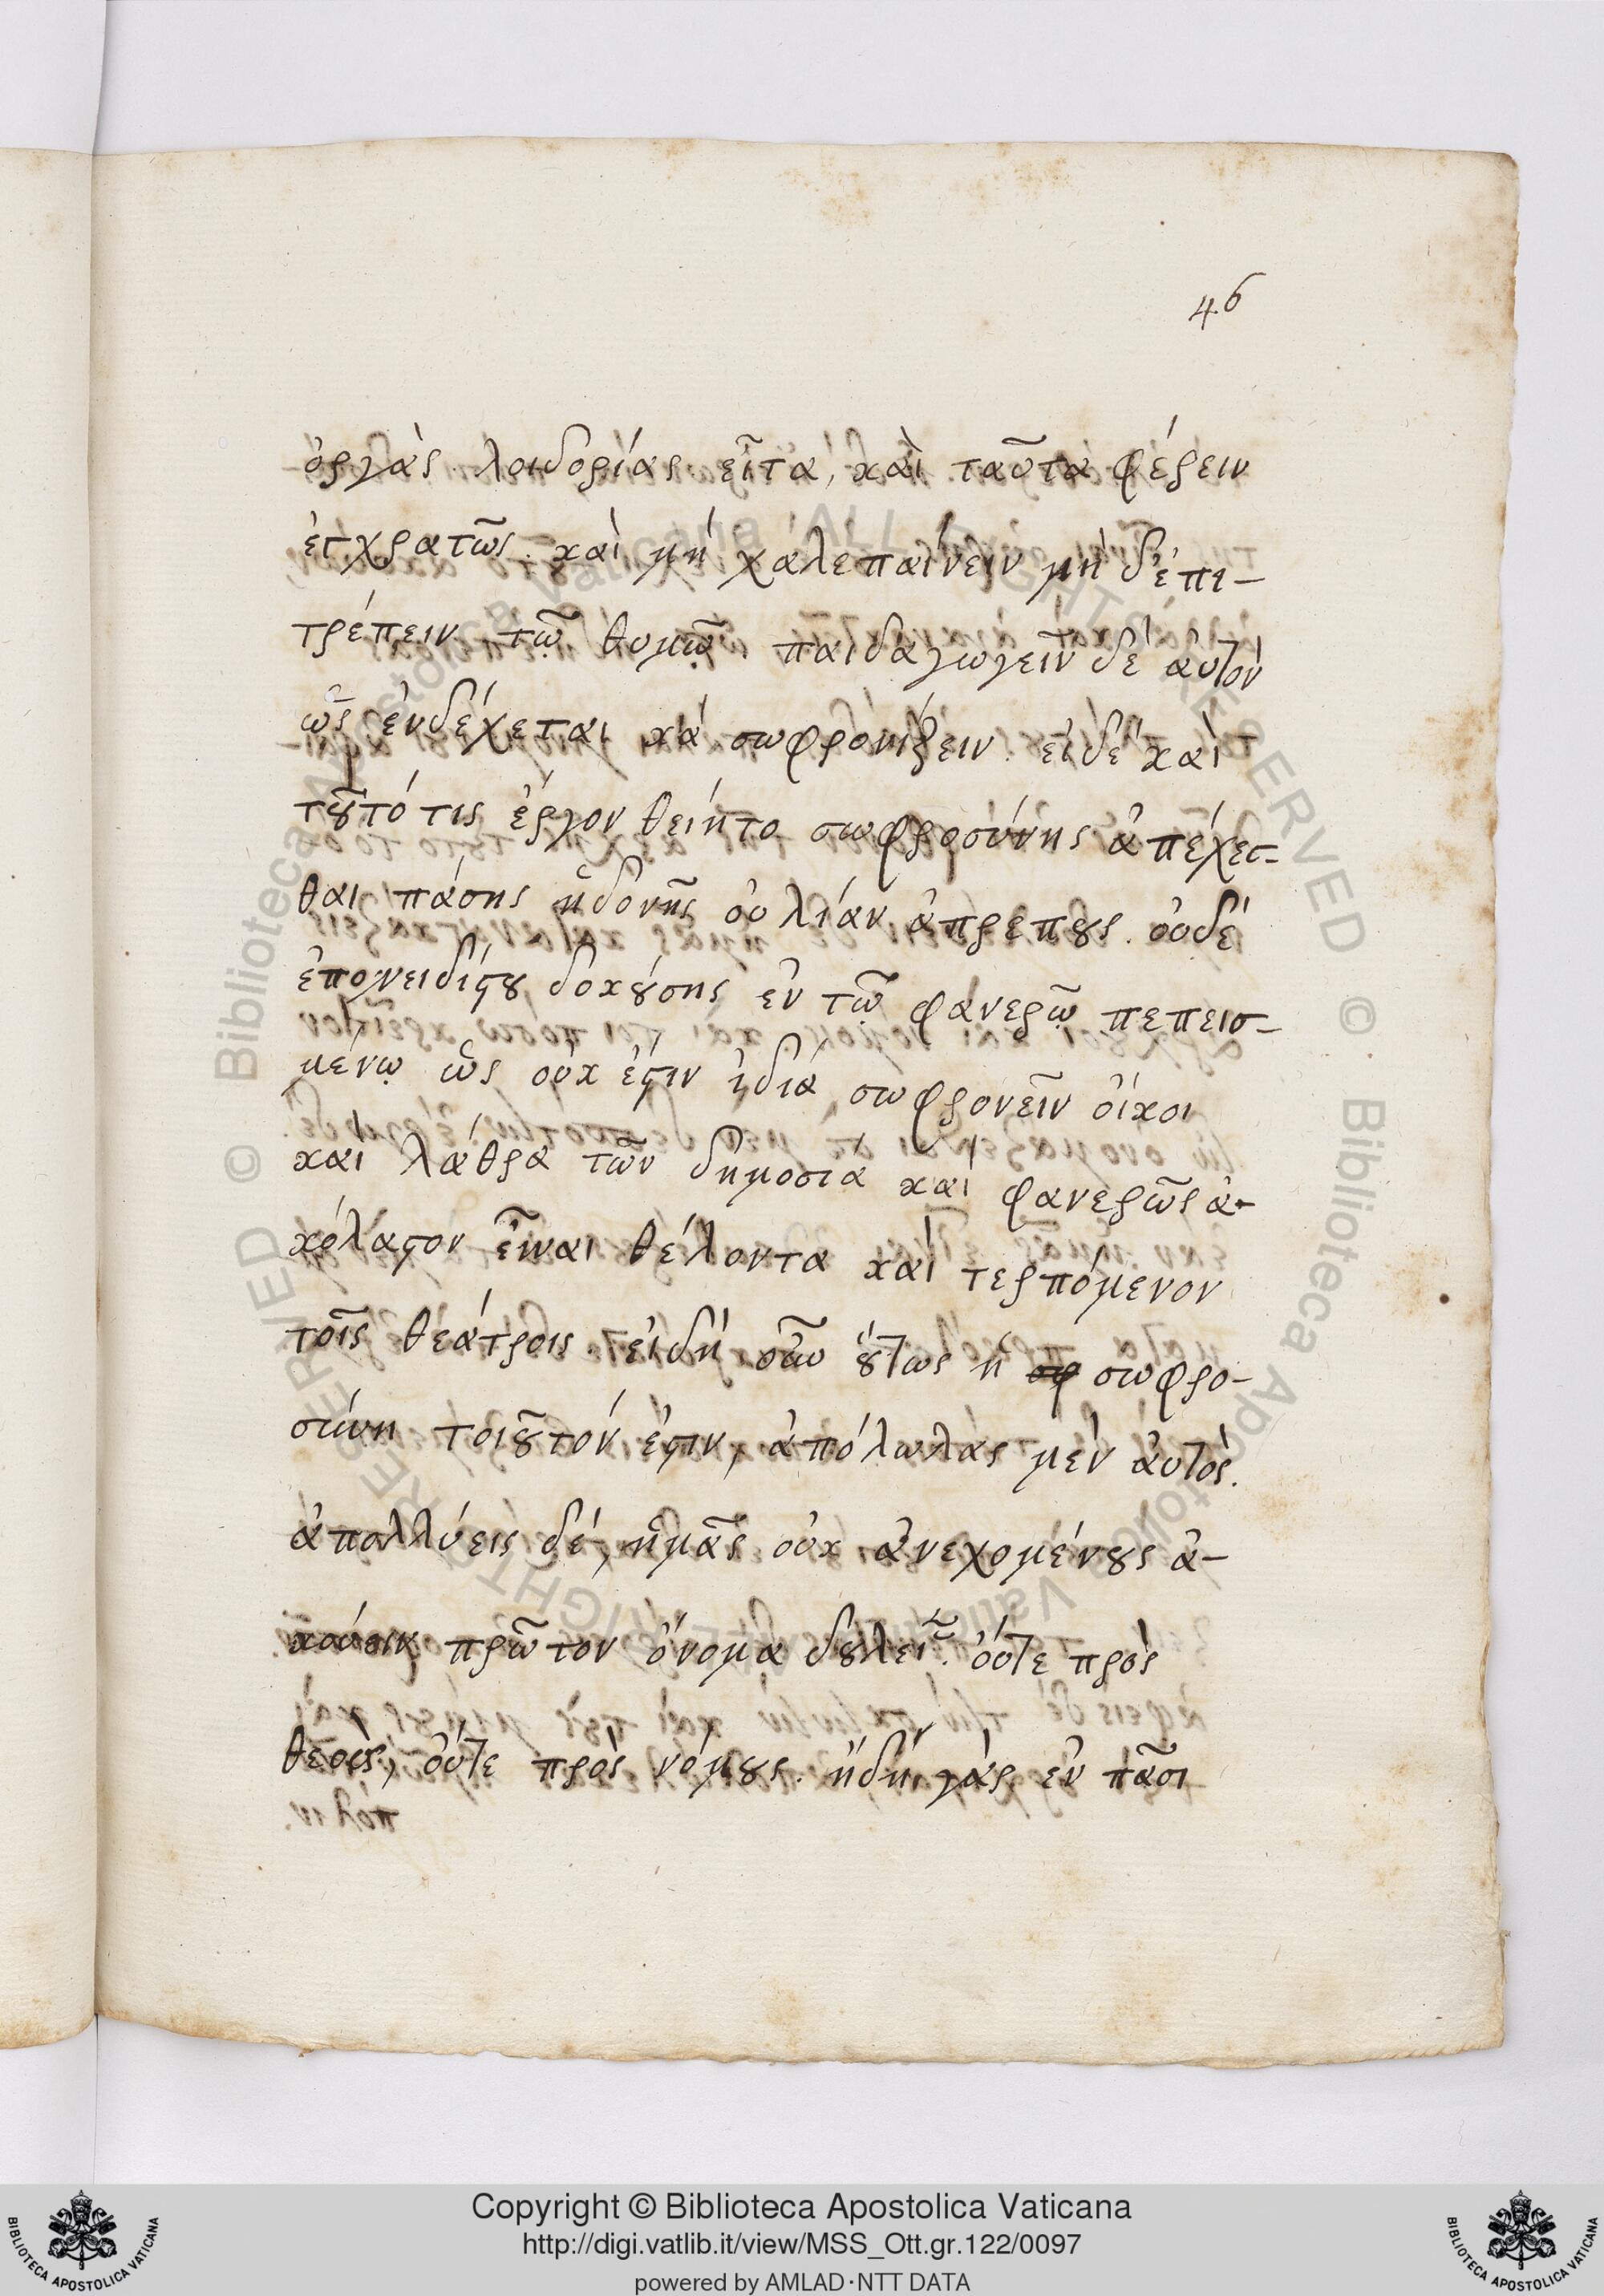 46
ὀργὰς λοιδορίας εἶτα, καὶ ταῦτα φέρειν
ἐγκρατῶς. καὶ μὴ χαλεπαίνειν μὴ δ' ἐπι-
τρέπειν τῷ θυμῷ. παιδαγωγεῖν δὲ αὐτὸν
ὡς ἐνδέχεται καὶ σωφρονίζειν. εἰ δὲ καὶ
τοῦτό τις ἔργον θείητο σωφροσύνης ἀπέχεσ-
θαι πάσης ἡδονῆς οὐ λίαν ἀπρεποῦς. οὐδὲ
ἐπονειδίστου δοκούσης ἐν τῷ φανερῷ πεπεισ-
μένῳ ὡς οὐκ ἔστιν ἰδίᾳ σωφρονεῖν οἴκοι
καὶ λάθρα τὸν δημοσίᾳ καὶ φανερῶς ἀ-
κόλαστον εἶναι θέλοντα καὶ τερπόμενον
τοῖς θεάτροις. εἰ δὴ οὖν οὕτως ἡ σωφρο-
σύνη τοιοῦτόν ἐστιν, ἀπόλωλας μὲν αὐτὸς.
ἀπολλύεις δὲ, ἡμᾶς οὐκ ἀνεχομένους ἀ-
κούειν πρῶτον ὄνομα δουλείας. οὔτε πρὸς
θεοὺς, οὔτε πρὸς νόμους. ἡδὺ γὰρ ἐν πᾶσι
Copyright © Biblioteca Apostolica Vaticana
http://digi.vatlib.it/view/MSS_Ott.gr.122/0097
powered by AMLAD·NTT DATA
BIBLIOTECA APOSTOLICA VATICANA
BIBLIOTECA APOSTOLICA VATICANA